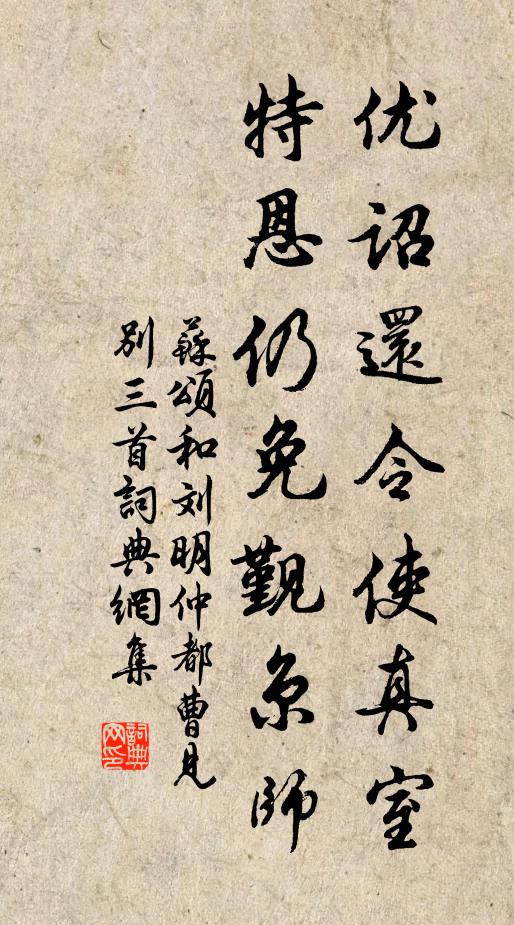 优诏還令使真室
特恩仍免觐京师
蘇頌和刘明仲都曹見
别三首詞典網集
詞典网印